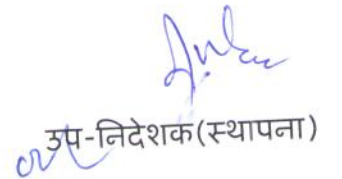 उप-निदेशक(स्थापना)